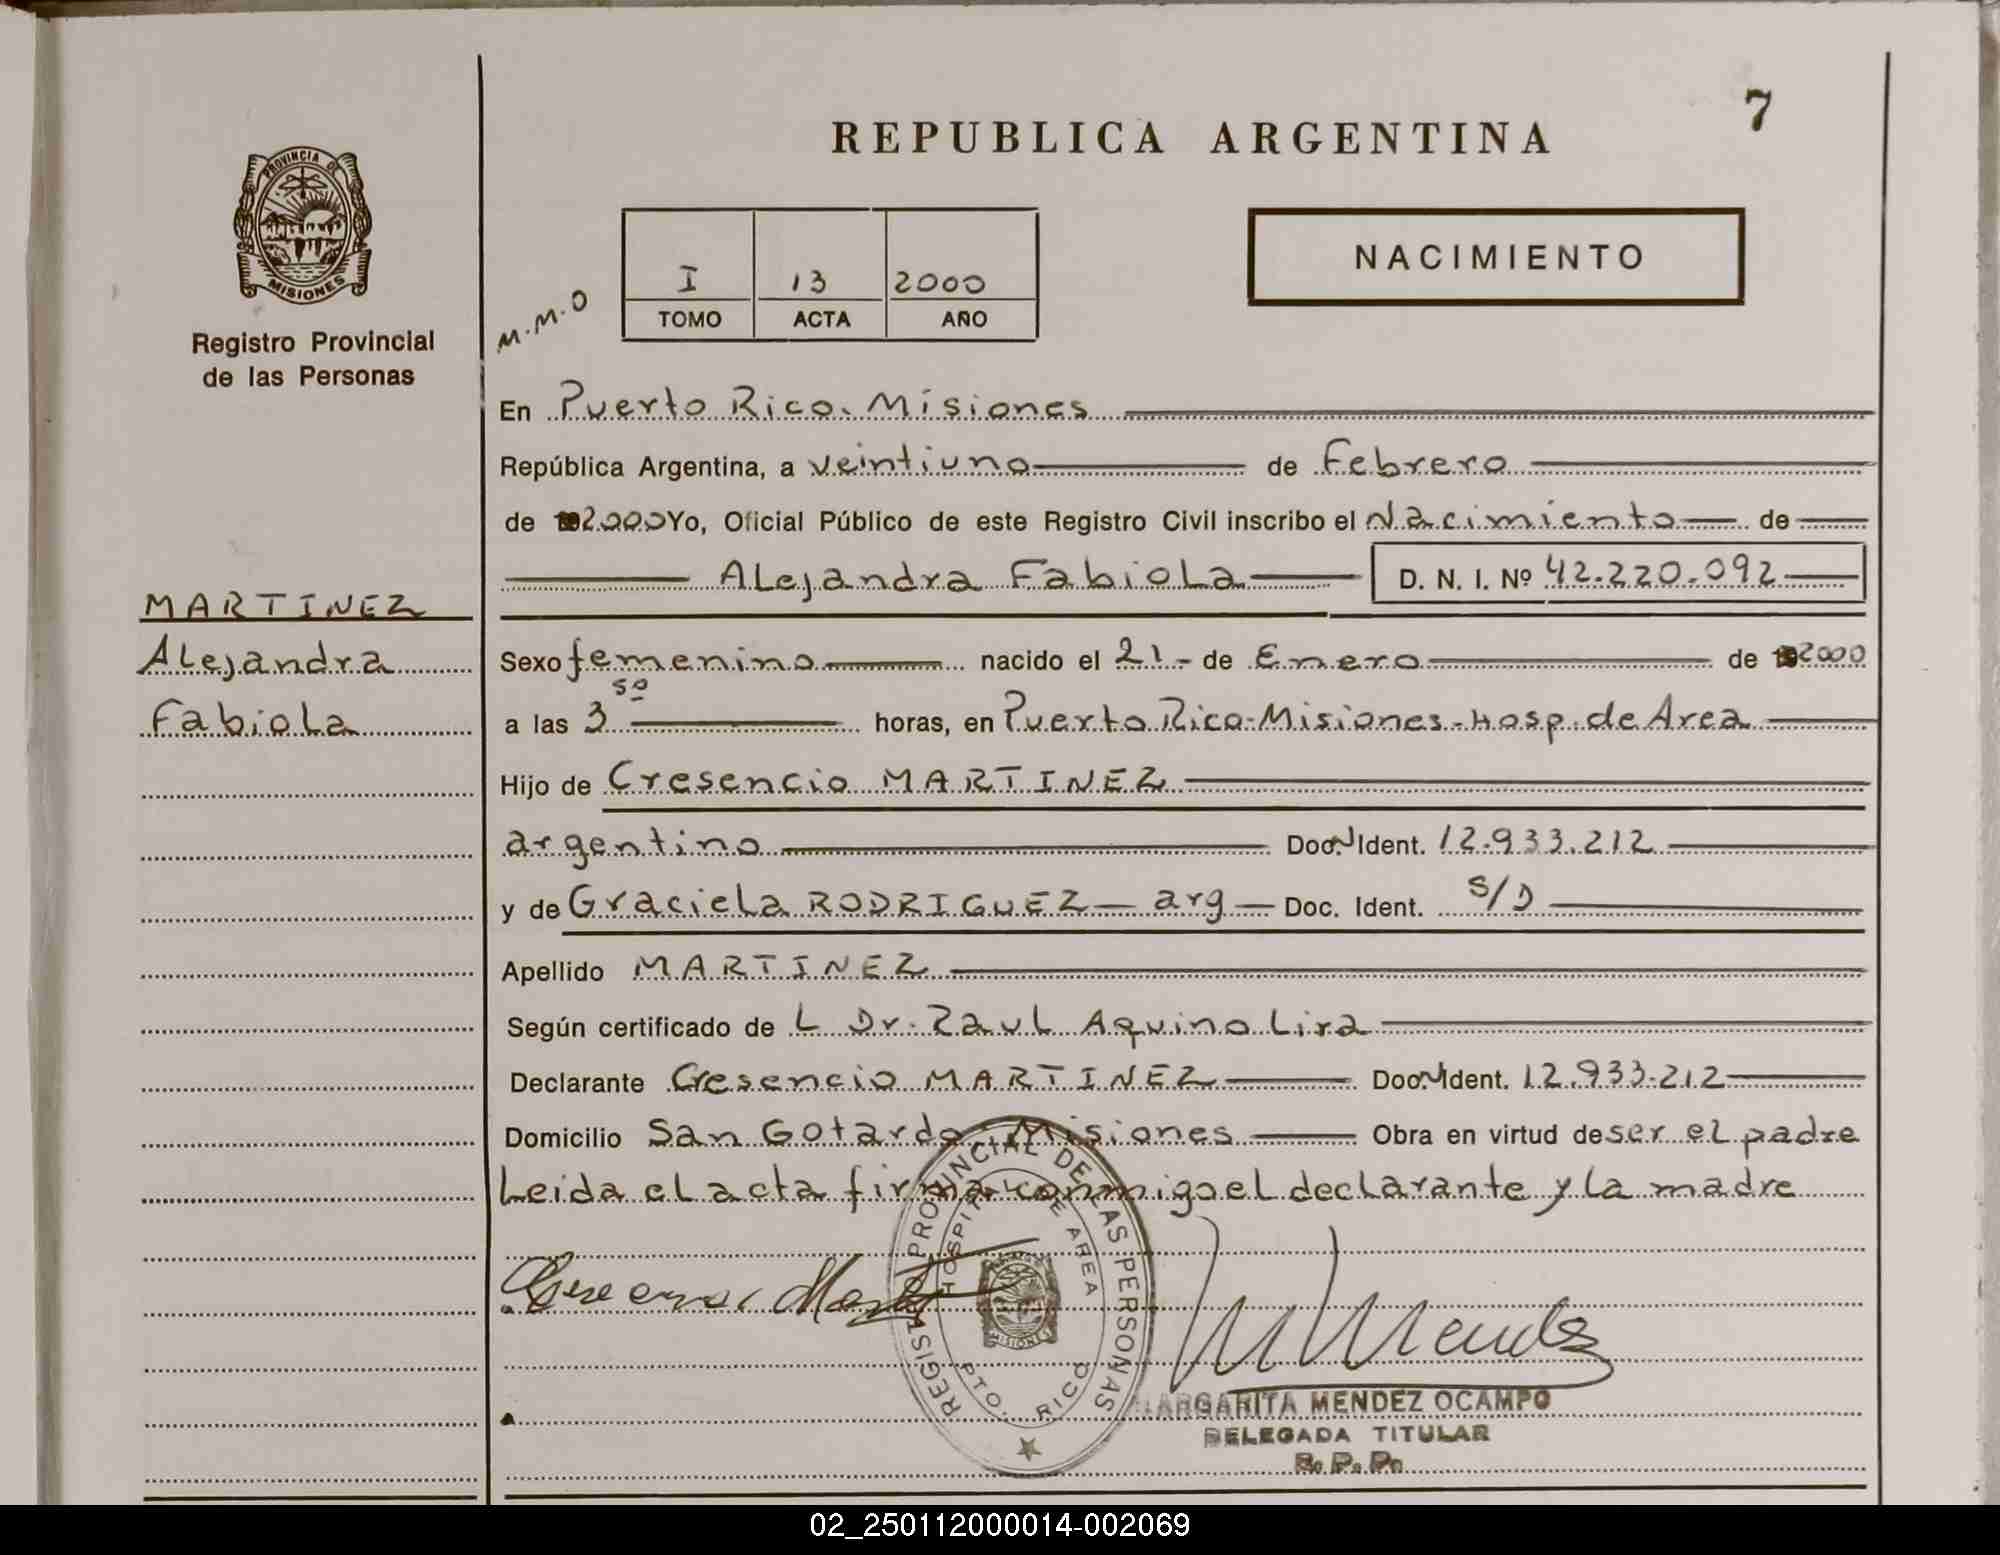 7
REPUBLICA ARGENTINA
PROVINCIA DE
MISIONES
Registro Provincial
de las Personas
NACIMIENTO
I 13 2000
TOMO ACTA AÑO
M.M.O
En Puerto Rico. Misiones
República Argentina, a veintiuno de Febrero
de 2.000 Yo, Oficial Público de este Registro Civil inscribo el Nacimiento de
Alejandra Fabiola D. N. I. Nº 42.220.092
MARTINEZ
Alejandra
Fabiola
Sexo femenino nacido el 21.- de Enero de 2000
a las 3 50 horas, en Puerto Rico-Misiones-Hosp. de Area
Hijo de Cresencio MARTINEZ
argentino Doc. Ident. 12.933.212
y de Graciela RODRIGUEZ - arg - Doc. Ident. S/D
Apellido MARTINEZ
Según certificado de L Dr. Raul Aquino Lira
Declarante Cresencio MARTINEZ Doc. Ident. 12.933.212
Domicilio San Gotardo. Misiones Obra en virtud de ser el padre
Leida el acta firma conmigo el declarante y la madre
REGISTRO PROVINCIAL DE LAS PERSONAS
HOSPITAL DE AREA
MISIONES
PTO. RICO
M Mendez
MARGARITA MENDEZ OCAMPO
DELEGADA TITULAR
R. P. P.
02_250112000014-002069